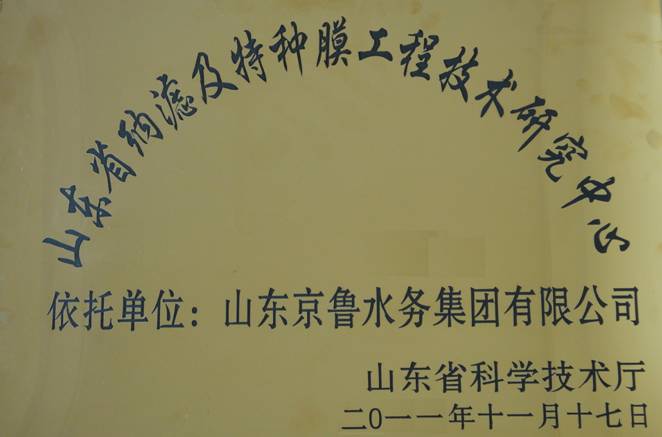 山东省纳滤及特种膜工程技术研究中心
依托单位：山东京鲁水务集团有限公司
山东省科学技术厅
二0一一年十一月十七日